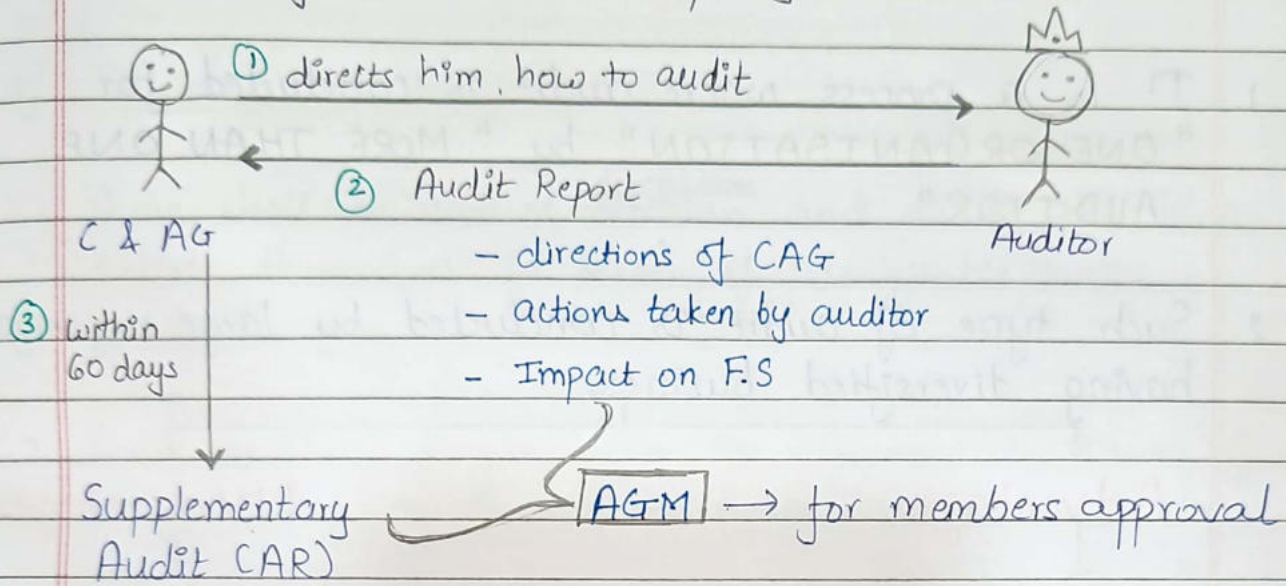 ① directts him, how to audit
② Audit Report
C & AG
Auditor
- directions of CAG
- actions taken by auditor
③ within
60 days
- Impact on F.S
Supplementary
Audit (AR)
AGM → for members approval